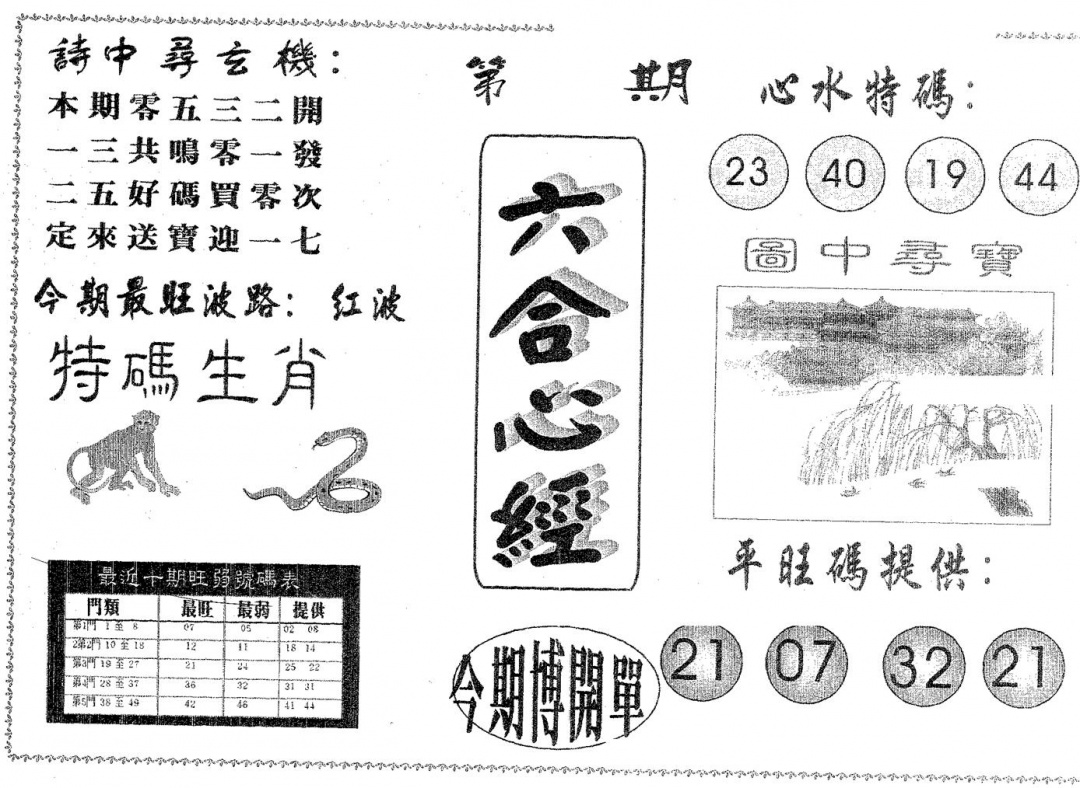 詩中尋玄機：
本期零五三二開
一三共鳴零一發
二五好碼買零次
定來送寶迎一七
今期最旺波路：紅波
特碼生肖
最近十期旺弱號碼表
門類 最旺 最弱 提供
第1門 1 至 8 07 05 02 08
2第2門 10 至 18 12 11 18 14
第3門 19 至 27 21 24 25 22
第4門 28 至 37 36 32 31 31
第5門 38 至 49 42 46 41 44
第 期
六合心經
今期博開單
心水特碼：
23 40 19 44
圖中尋寶
平旺碼提供：
21 07 32 21